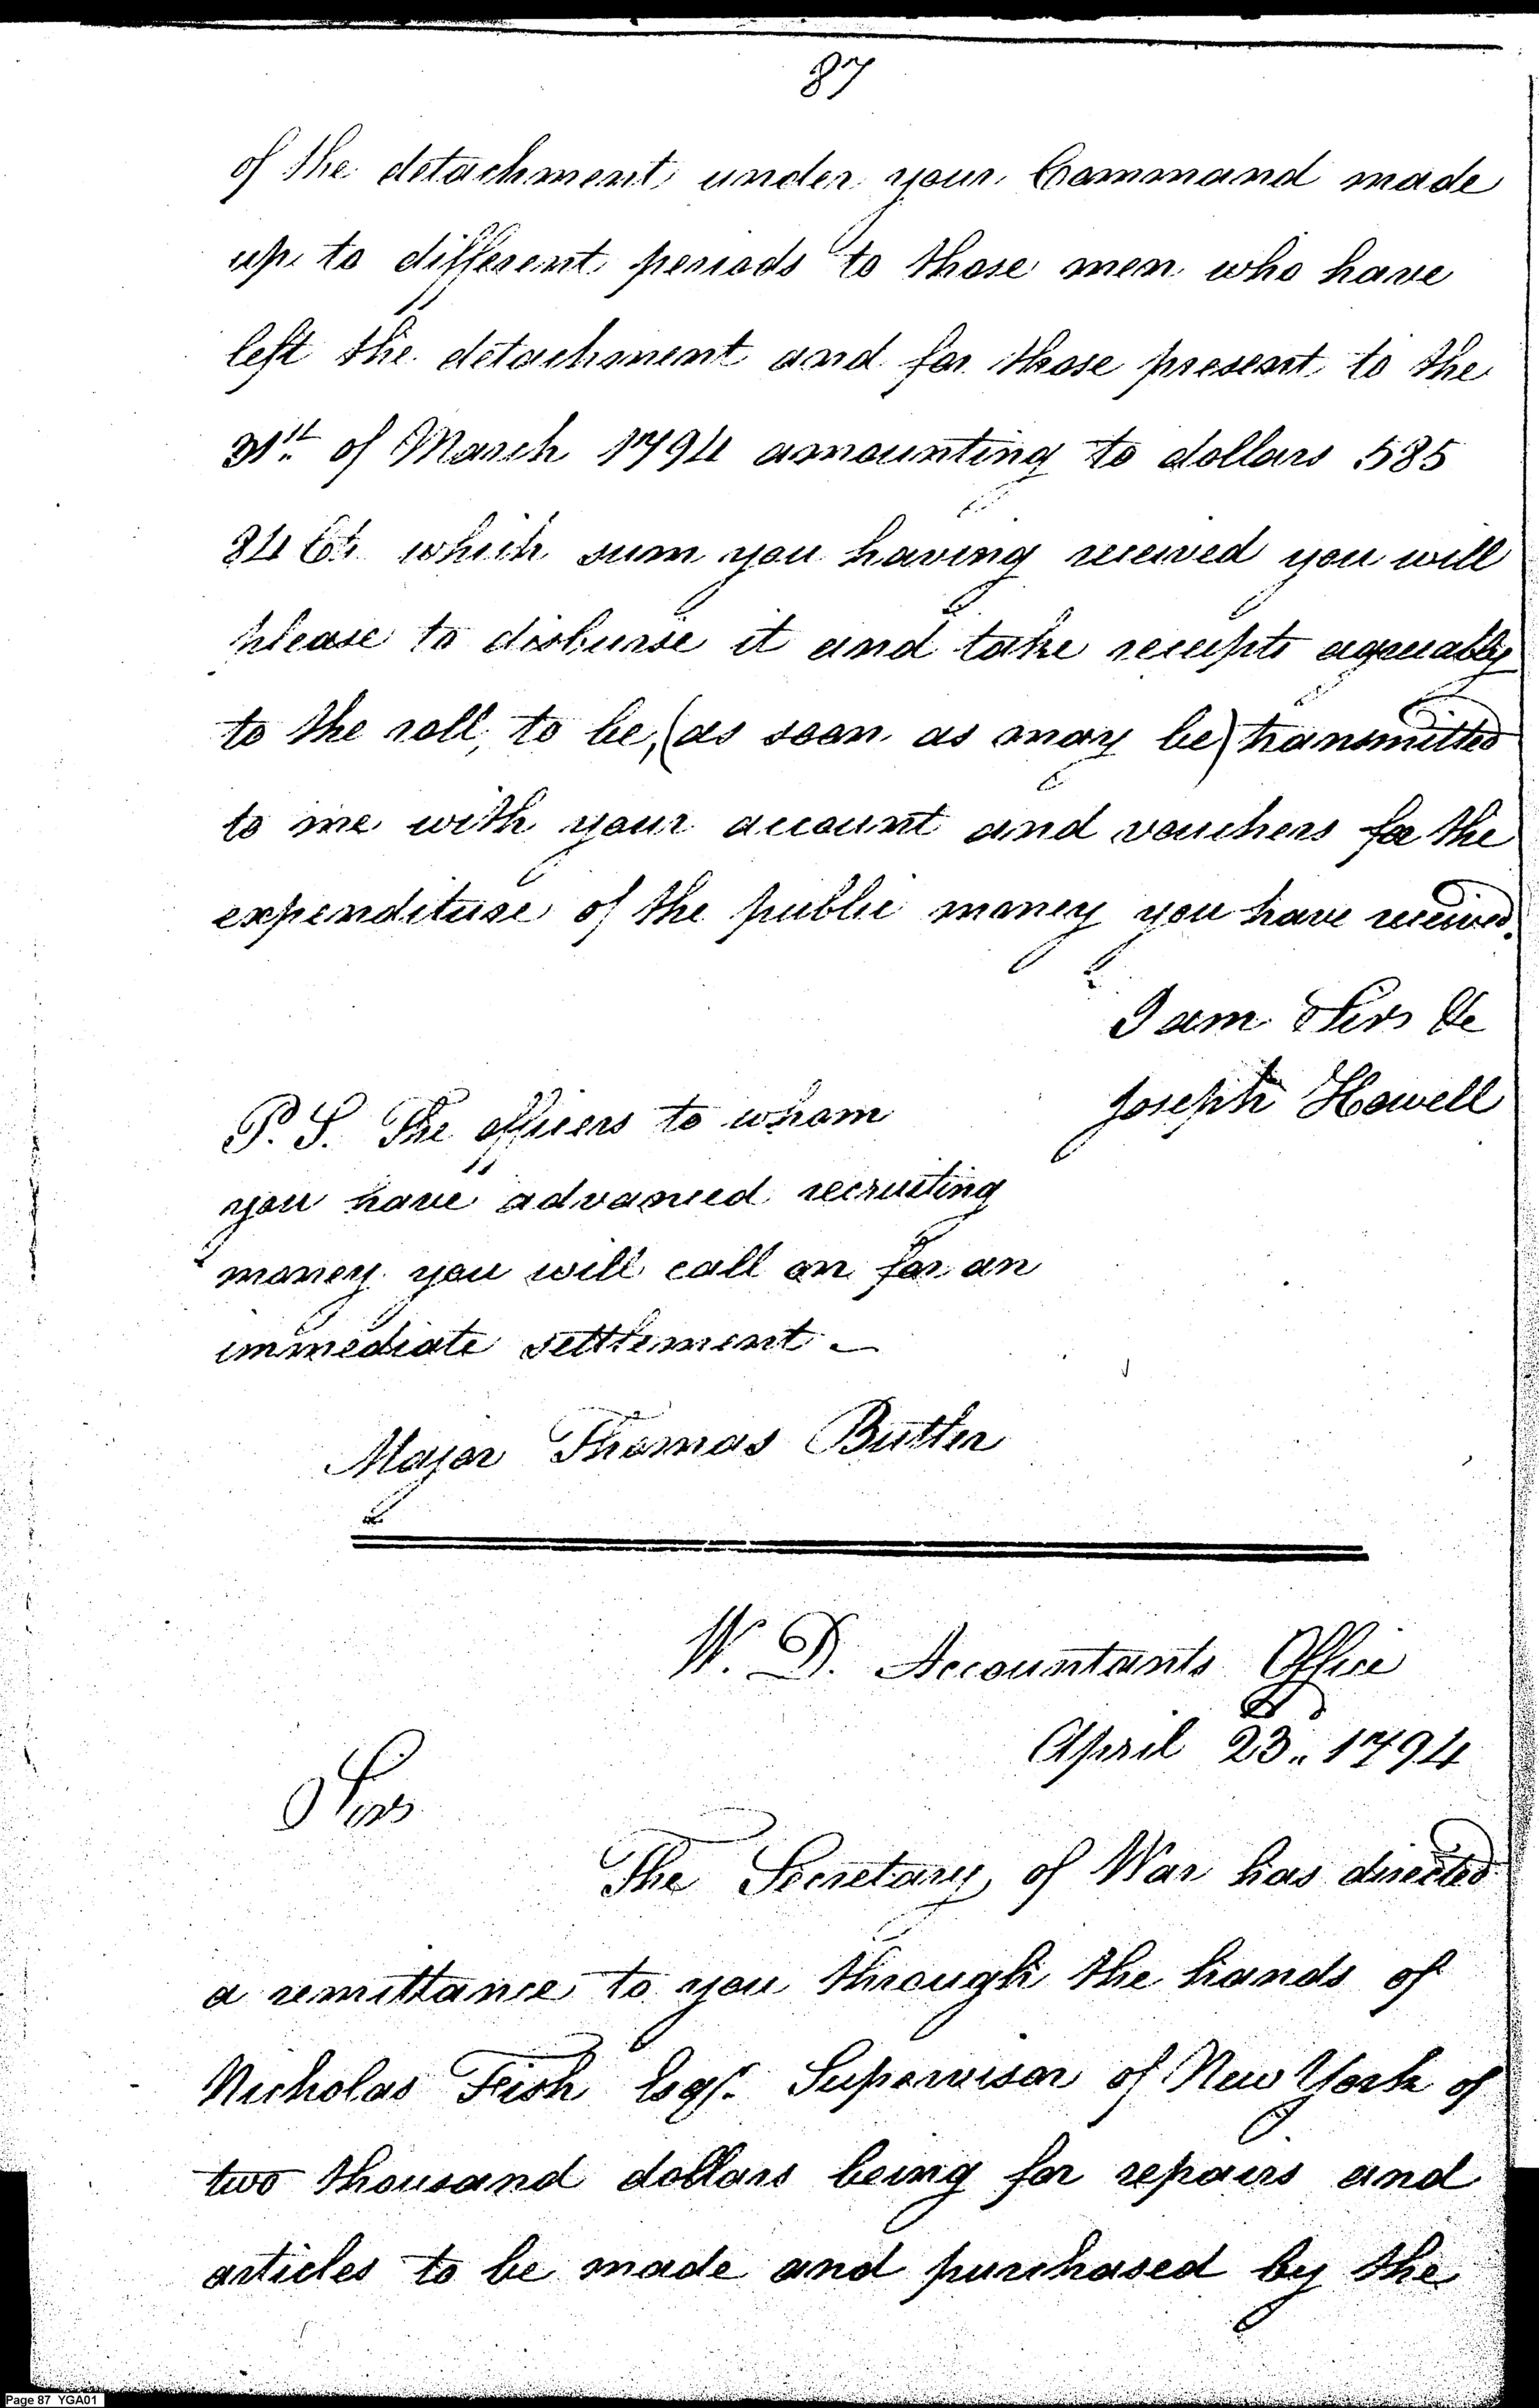 87
of the detachment under your Command made
up to different periods to those men who have
left the detachment and for those present to the
31st of March 1794 amounting to dollars 585
84 Cts which sum you having received you will
please to disburse it and take receipts agreeably
to the roll, to be, (as soon as may be) transmitted
to me with your account and vouchers for the
expenditure of the public money you have received.
I am Sir &c
Joseph Howell
P. S. The officers to whom
you have advanced recruiting
money you will call on for an
immediate settlement. –
Major Thomas Butler
W. D. Accountants Office
April 23d. 1794
Sir
The Secretary of War has directed
a remittance to you through the hands of
Nicholas Fish Esqr. Supervisor of New York of
two thousand dollars being for repairs and
articles to be made and purchased by the
Page 87 YGA01